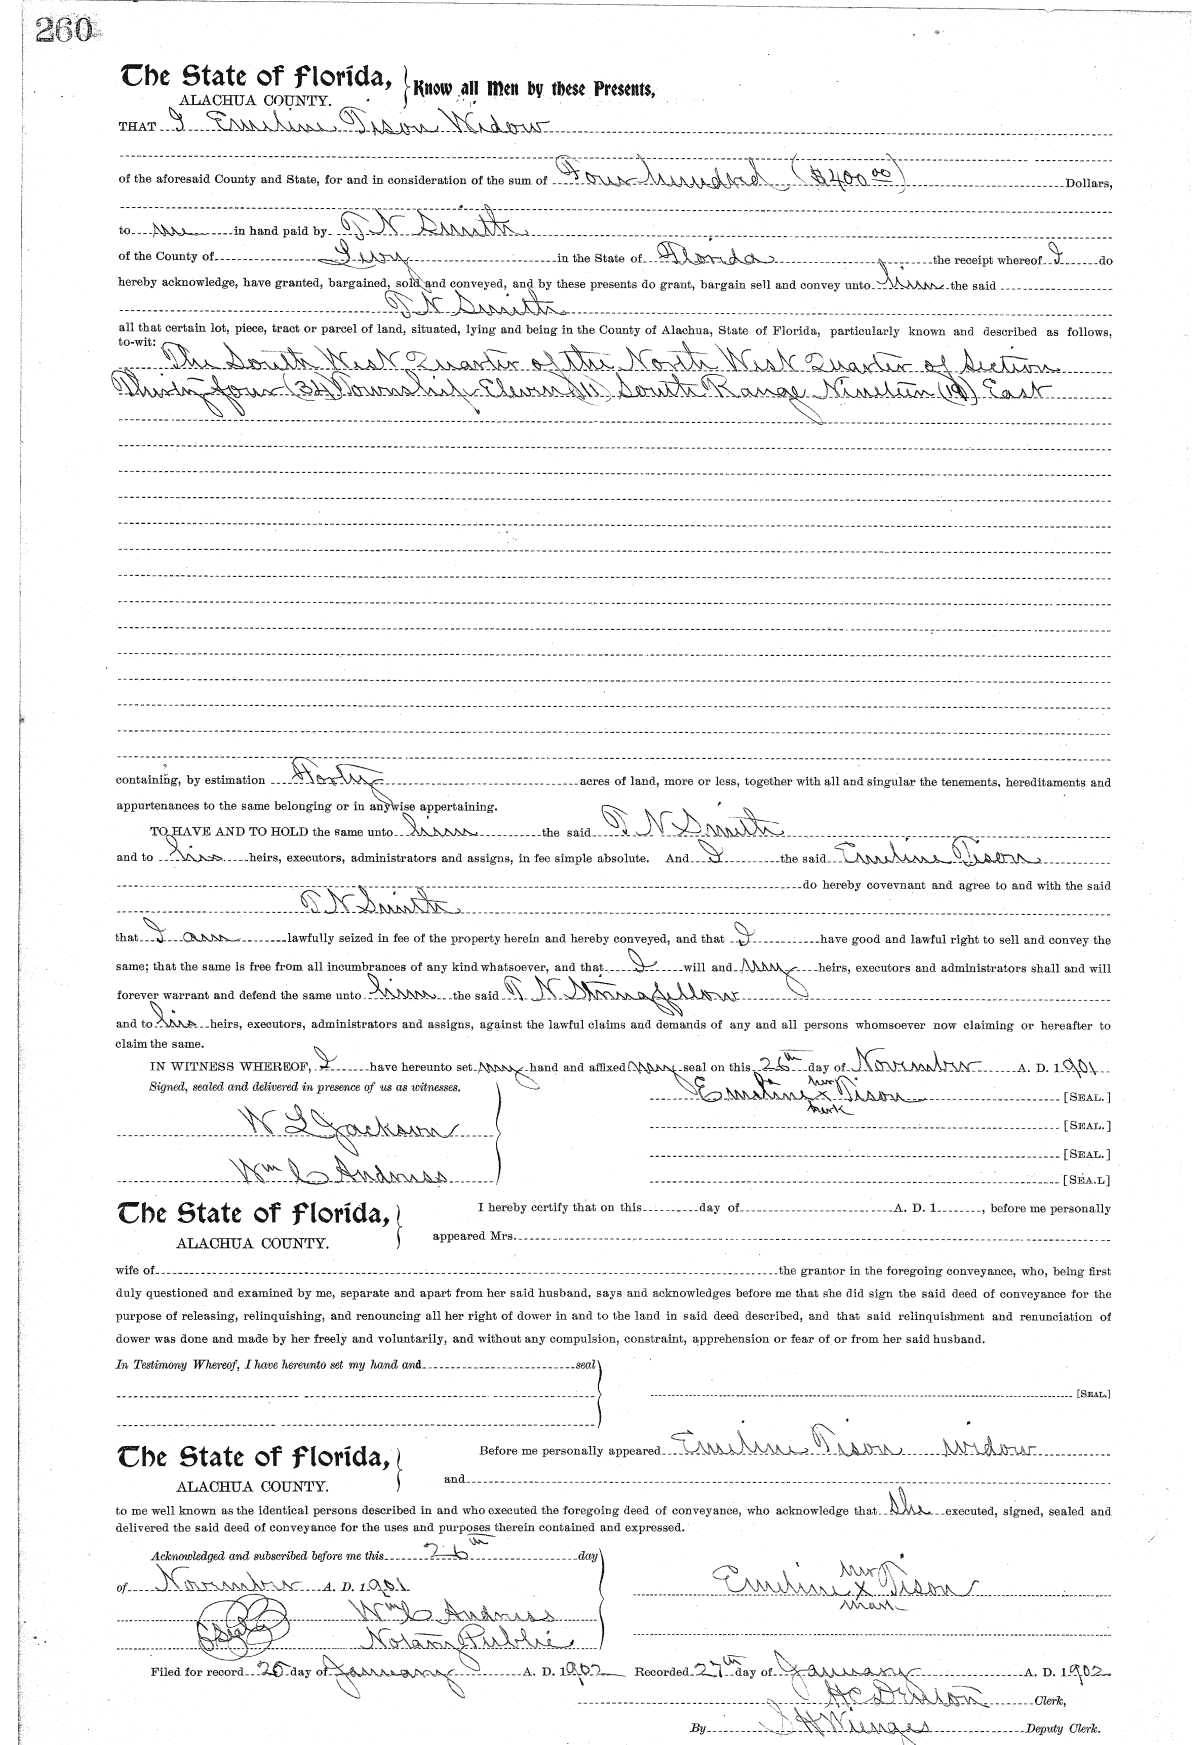 260
The State of Florida, Know all Men by these Presents,
ALACHUA COUNTY.
THAT I Emeline Tison Widow
of the aforesaid County and State, for and in consideration of the sum of Four hundred ($400 00) Dollars,
to me in hand paid by T N Smith
of the County of Levy in the State of Florida the receipt whereof I do
hereby acknowledge, have granted, bargained, sold and conveyed, and by these presents do grant, bargain sell and convey unto him the said
T N Smith
all that certain lot, piece, tract or parcel of land, situated, lying and being in the County of Alachua, State of Florida, particularly known and described as follows,
to-wit:
The South West Quarter of the North West Quarter of Section
Thirty four (34) Township Eleven (11) South Range Nineteen (19) East
containing, by estimation Forty acres of land, more or less, together with all and singular the tenements, hereditaments and
appurtenances to the same belonging or in anywise appertaining.
TO HAVE AND TO HOLD the same unto him the said T N Smith
and to his heirs, executors, administrators and assigns, in fee simple absolute. And I the said Emeline Tison
do hereby covevnant and agree to and with the said
T N Smith
that I am lawfully seized in fee of the property herein and hereby conveyed, and that I have good and lawful right to sell and convey the
same; that the same is free from all incumbrances of any kind whatsoever, and that I will and my heirs, executors and administrators shall and will
forever warrant and defend the same unto him the said T N Stringfellow
and to his heirs, executors, administrators and assigns, against the lawful claims and demands of any and all persons whomsoever now claiming or hereafter to
claim the same.
IN WITNESS WHEREOF, I have hereunto set my hand and affixed my seal on this 26th day of November A. D. 1901
Signed, sealed and delivered in presence of us as witnesses.
her
Emeline x Tison [SEAL.]
mark
W L Jackson [SEAL.]
[SEAL.]
Wm C Andruss [SEA.L]
The State of Florida, I hereby certify that on this day of A. D. 1 , before me personally
ALACHUA COUNTY. appeared Mrs.
wife of the grantor in the foregoing conveyance, who, being first
duly questioned and examined by me, separate and apart from her said husband, says and acknowledges before me that she did sign the said deed of conveyance for the
purpose of releasing, relinquishing, and renouncing all her right of dower in and to the land in said deed described, and that said relinquishment and renunciation of
dower was done and made by her freely and voluntarily, and without any compulsion, constraint, apprehension or fear of or from her said husband.
In Testimony Whereof, I have hereunto set my hand and seal
[SEAL.]
The State of Florida, Before me personally appeared Emeline Tison widow
ALACHUA COUNTY. and
to me well known as the identical persons described in and who executed the foregoing deed of conveyance, who acknowledge that she executed, signed, sealed and
delivered the said deed of conveyance for the uses and purposes therein contained and expressed.
Acknowledged and subscribed before me this 26th day
her
of November A. D. 1901 Emeline x Tison
mark
Wm C Andruss
(Seal) Notary Public
Filed for record 25 day of January A. D. 1902 Recorded 27th day of January A. D. 1902
H C Denton Clerk,
By S H Wienges Deputy Clerk.